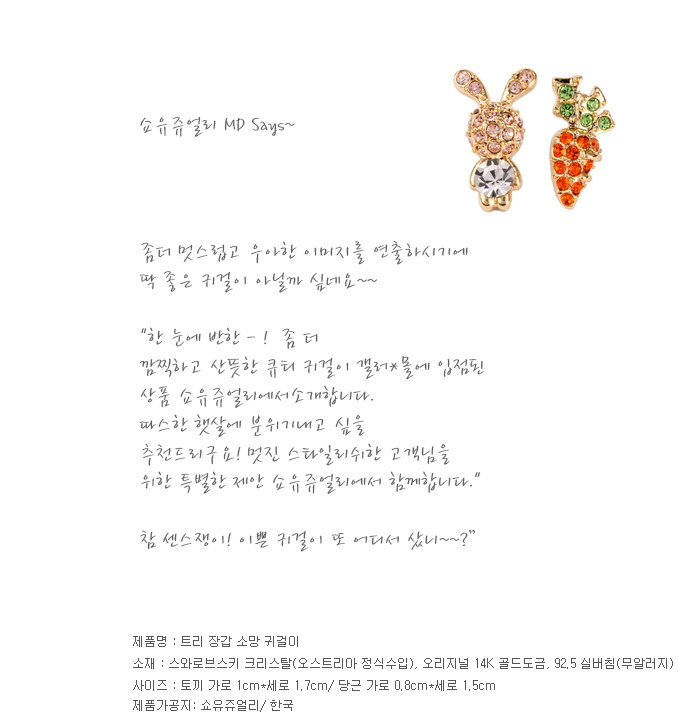 쇼유쥬얼리 MD Says~
좀더 멋스럽고 우아한 이미지를 연출하시기에
딱 좋은 귀걸이 아닐까 싶네요~~
"한 눈에 반한 - ! 좀 더
깜찍하고 산뜻한 큐티 귀걸이 갤러*몰에 입점된
상품 쇼유쥬얼리에서소개합니다.
따스한 햇살에 분위기내고 싶을
추천드리구요! 멋진 스타일리쉬한 고객님을
위한 특별한 제안 쇼유쥬얼리에서 함께합니다."
참 센스쟁이! 이쁜 귀걸이 또 어디서 샀니~~?"
제품명 : 트리 장갑 소망 귀걸이
소재 : 스와로브스키 크리스탈(오스트리아 정식수입), 오리지널 14K 골드도금, 92.5 실버침(무알러지)
사이즈 : 토끼 가로 1cm*세로 1.7cm/ 당근 가로 0.8cm*세로 1.5cm
제품가공지: 쇼유쥬얼리/ 한국